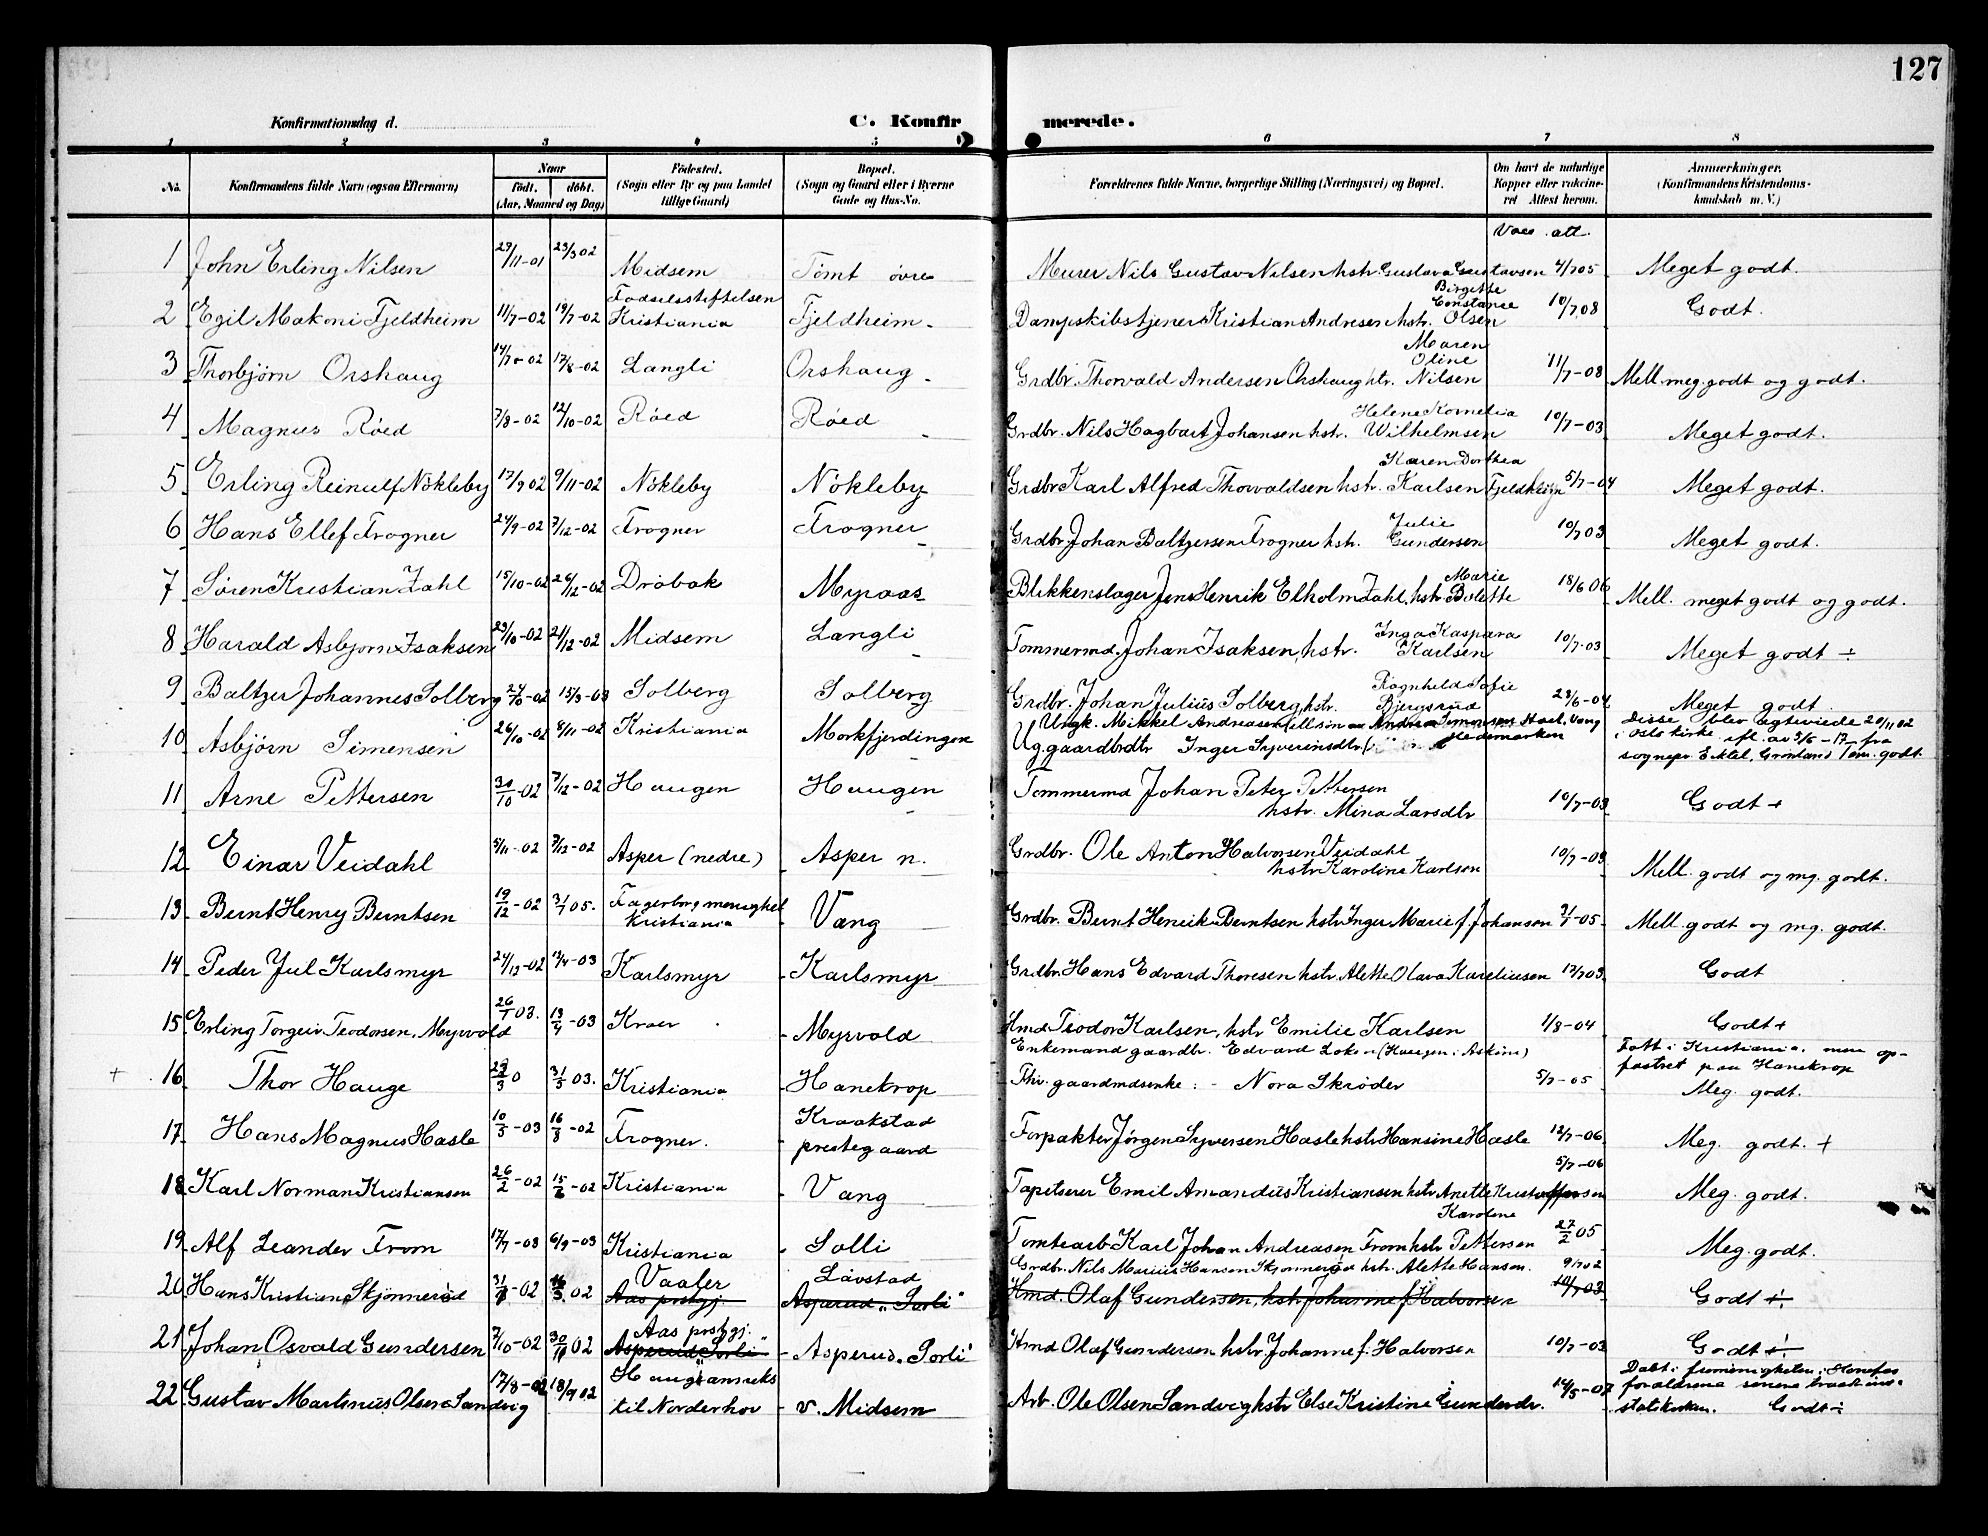 127
Konfirmationsdag d. C. Konfirmerede.
1 2 3 4 5 6 7 8
No. Konfirmandens fulde Navn (ogsaa Efternavn) Naar født. døbt. (Aar, Maaned og Dag) Fødested. (Sogn eller By og paa Landet tillige Gaard) Bopæl. (Sogn og Gaard eller i Byerne Gade og Hus-No. Forældrenes fulde Navne, borgerlige Stilling (Næringsvei) og Bopæl. Om havt de naturlige Kopper eller vakcineret Attest herom. Anmærkninger. (Konfirmandens Kristendomskundskab m. V.)
Vacc. att.
1 John Erling Nilsen 29/11-01 23/3 02 Midsem Tomt øvre Murer Nils Gustav Nilsen hstr. Gustava Gustavsen 4/7 05 Meget godt.
2 Egil Makoni Fjeldheim 11/7-02 19/7-02 Fødselsstiftelsen Kristiania Fjeldheim Dampskibstjener Kristian Andresen hstr. Birgette Constance Olsen 10/7 08 Godt.
3 Thorbjørn Orshaug 14/7-02 17/8-02 Langli Orshaug Grdbr. Thorvald Andersen Orshaug htr. Maren Oline Nilsen 11/7-08 Mell. meg. godt og godt.
4 Magnus Røed 7/8-02 12/10-02 Røed Røed Grdbr. Nils Hagbart Johansen hstr. Helene Kornelia Wilhelmsen 10/7-03 Meget godt.
5 Erling Reinulf Nökleby 17/9 02 9/11-02 Nökleby Nökleby Grdbr Karl Alfred Thorvaldsen hstr. Karen Dorthea Karlsen Fjeldheim 5/7-04 Meget godt.
6 Hans Ellef Frogner 24/9-02 7/12-02 Frogner Frogner Grdbr. Johan Baltzersen Frogner hstr. Julie Gundersen 10/7 03 Meget godt.
7 Søren Kristian Zahl 15/10-02 26/12-02 Drøbak Myraas Blikkenslager Jens Henrik Elholm Zahl, hstr. Marie Bolette 18/6 06 Mell. meget godt og godt.
8 Harald Asbjørn Isaksen 29/10-02 21/12-02 Midsem Langli Tømmermd. Johan Isaksen, hstr. Inga Kaspara Karlsen 10/7-03 Meget godt ÷
9 Baltzer Johannes Solberg 24/10-02 15/3-03 Solberg Solberg Grdbr. Johan Julius Solberg hstr. Ragnhild Sofie Bjergsrud 28/6-04 Meget godt
10 Asbjørn Simensen 26/10-02 8/11-02 Kristiania Morkfjerdingen Ungk. Mikkel Andreasen Hedemarken Ug. gaardbrdtr Inger Syverinsdtr. Disse blev ægteviede 20/11 02 i Oslo kirke ifl. av 3/6-17 fra sognepr. Grønland godt.
11 Arne Pettersen 30/10-02 7/12-02 Haugen Haugen Tømmermd Johan Peter Pettersen hstr. Mina Larsdtr 10/7-03 Godt +
12 Einar Veidahl 5/11-02 7/12-02 Asper (nedre) Asper n. Grdbr. Ole Anton Halvorsen Veidahl hstr Karoline Karlsen 10/7-03 Mell. godt og mg. godt.
13 Bernt Henry Berntsen 19/12-02 05. Fagerborg menighet Kristiania Vang Grdbr. Bernt Henrik Berntsen hstr Inger Marie f. Johansen -05 Mell godt og mg. godt.
14 Peder Jul Karlsmyr 24/12-02 13/4-03 Karlsmyr Karlsmyr Grdbr. Hans Edvard Thoresen hstr Alette Olava Kareliusen 17/7 03 Godt
15 Erling Torgeir Teodorsen, Myrvold 26/1 03. 13/4-03 Kroer Myrvold Hmd Teodor Karlsen, hstr Emilie Karlsen 1/8-04 Godt +
+ 16 Thor Hauge 31/5 03. Kristiania Hanekrop Enkemand gaardbr. Edvard Løken (Haugen i Askim) Thv. gaardmdsenke: - Nora Skrøder 5/7-05 Født i Kristiania, men opfostret paa Hanekrop Meg. godt.
17 Hans Magnus Hasle 10/3-03 16/8-02 Frogner. Kraakstad prestegaard Forpakter Jørgen Syversen Hasle hstr Hansine Hasle 12/7-06 Meg. godt. +
18 Karl Norman Kristiansen 26/2-02 15/6-02 Kristiania Vang Tapetserer Emil Amandus Kristiansen hstr Anette Kristoffersen 5/7-06 Meg. godt.
19 Alf Leander From 17/7-03 6/9-03 Kristiania Solli Tomtearb Karl Johan Andreasen From hstr Karoline Pettersen 27/2 05 Meg. godt.
20 Hans Kristian Skjønnerød -02 02 Vaaler Aas prstgj. Løvstad Asperud "Sorli" Grdbr. Nils Marius Hansen Skjønnerød hstr Alette Hansen. Hmd. Olaf Gundersen, hstr Johanne f. Halvorsen 9/7 02 10/7-03 Godt +.
21 Johan Osvald Gundersen 7/10-02 30/11 02 Aas prstgj. Asperud Sorli Asperud "Sorli" Hmd Olaf Gundersen hstr. Johanne f. Halvorsen 10/7-03 Godt +.
22 Gustav Martinius Olsen Sandvig 17/8-02 18/9 02 annexs til Norderhov v. Midsem Arb. Ole Olsen Sandvig hstr Else Kristine Gundersdr. 14/5-07 Døbt i frimenigheten i Hønefos forældrene senere statskirken. Godt ÷